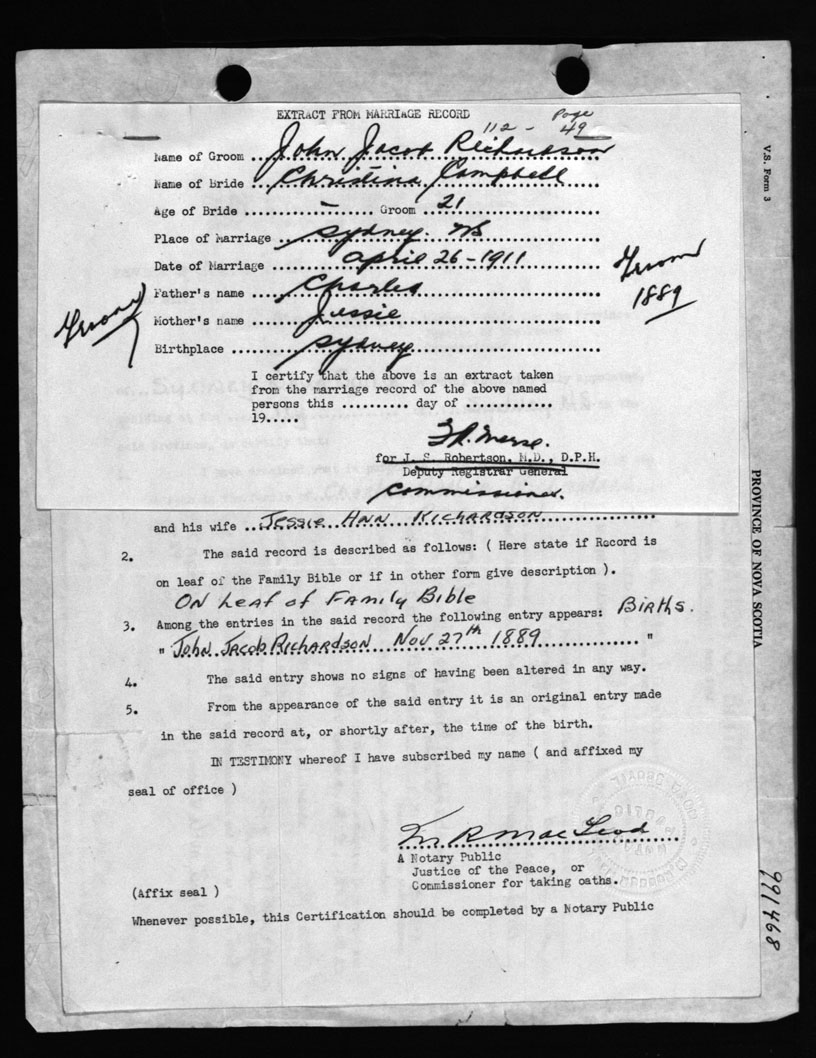 EXTRACT FROM MARRIAGE RECORD
112 - Page 49
Name of Groom .. John Jacob Richardson
Name of Bride .. Christina Campbell
Age of Bride ........ – ........ Groom .. 21
Place of Marriage .. Sydney. NS
Date of Marriage ...... April 26-1911
Father's name .... Charles
Mother's name ..... Jessie
Birthplace ..... Sydney
Groom
1889
I certify that the above is an extract taken
from the marriage record of the above named
persons this .......... day of .............
19.....
for J. S. Robertson, M.D., D.P.H.
Deputy Registrar General
Commissioner.
and his wife .. Jessie Ann Richardson
2. The said record is described as follows: ( Here state if Record is
on leaf of the Family Bible or if in other form give description ).
On Leaf of Family Bible
3. Among the entries in the said record the following entry appears: Births.
" John Jacob Richardson Nov 27th 1889 "
4. The said entry shows no signs of having been altered in any way.
5. From the appearance of the said entry it is an original entry made
in the said record at, or shortly after, the time of the birth.
IN TESTIMONY whereof I have subscribed my name ( and affixed my
seal of office )
R MacLeod
A Notary Public
Justice of the Peace, or
Commissioner for taking oaths.
(Affix seal )
Whenever possible, this Certification should be completed by a Notary Public
V.S. Form 3
PROVINCE OF NOVA SCOTIA
991468